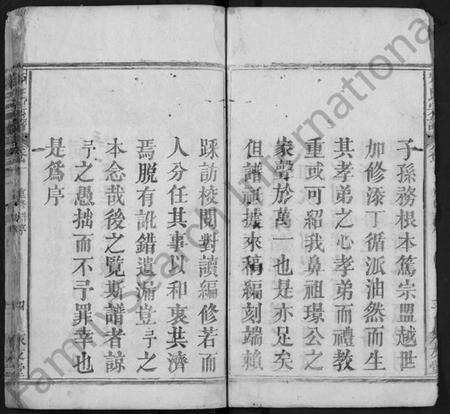 子孫務根本篤宗盟越世
加修添丁循派油然而生
其孝弟之心孝弟而禮教
重或可紹我鼻祖璟公之
家聲於萬一也是亦足矣
但譜祇據來稿編刻端賴
踩訪校閱對讀編修若而
人分任其事以和衷其濟
焉脫有訛錯遺漏豈予之
本念哉後之覽斯譜者諒
予之愚拙而不予罪幸也
是為序
FamilySearch International